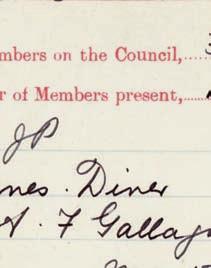 mbers on the Council,
r of Members present,
JP
nes. Diner
A. F Gallag